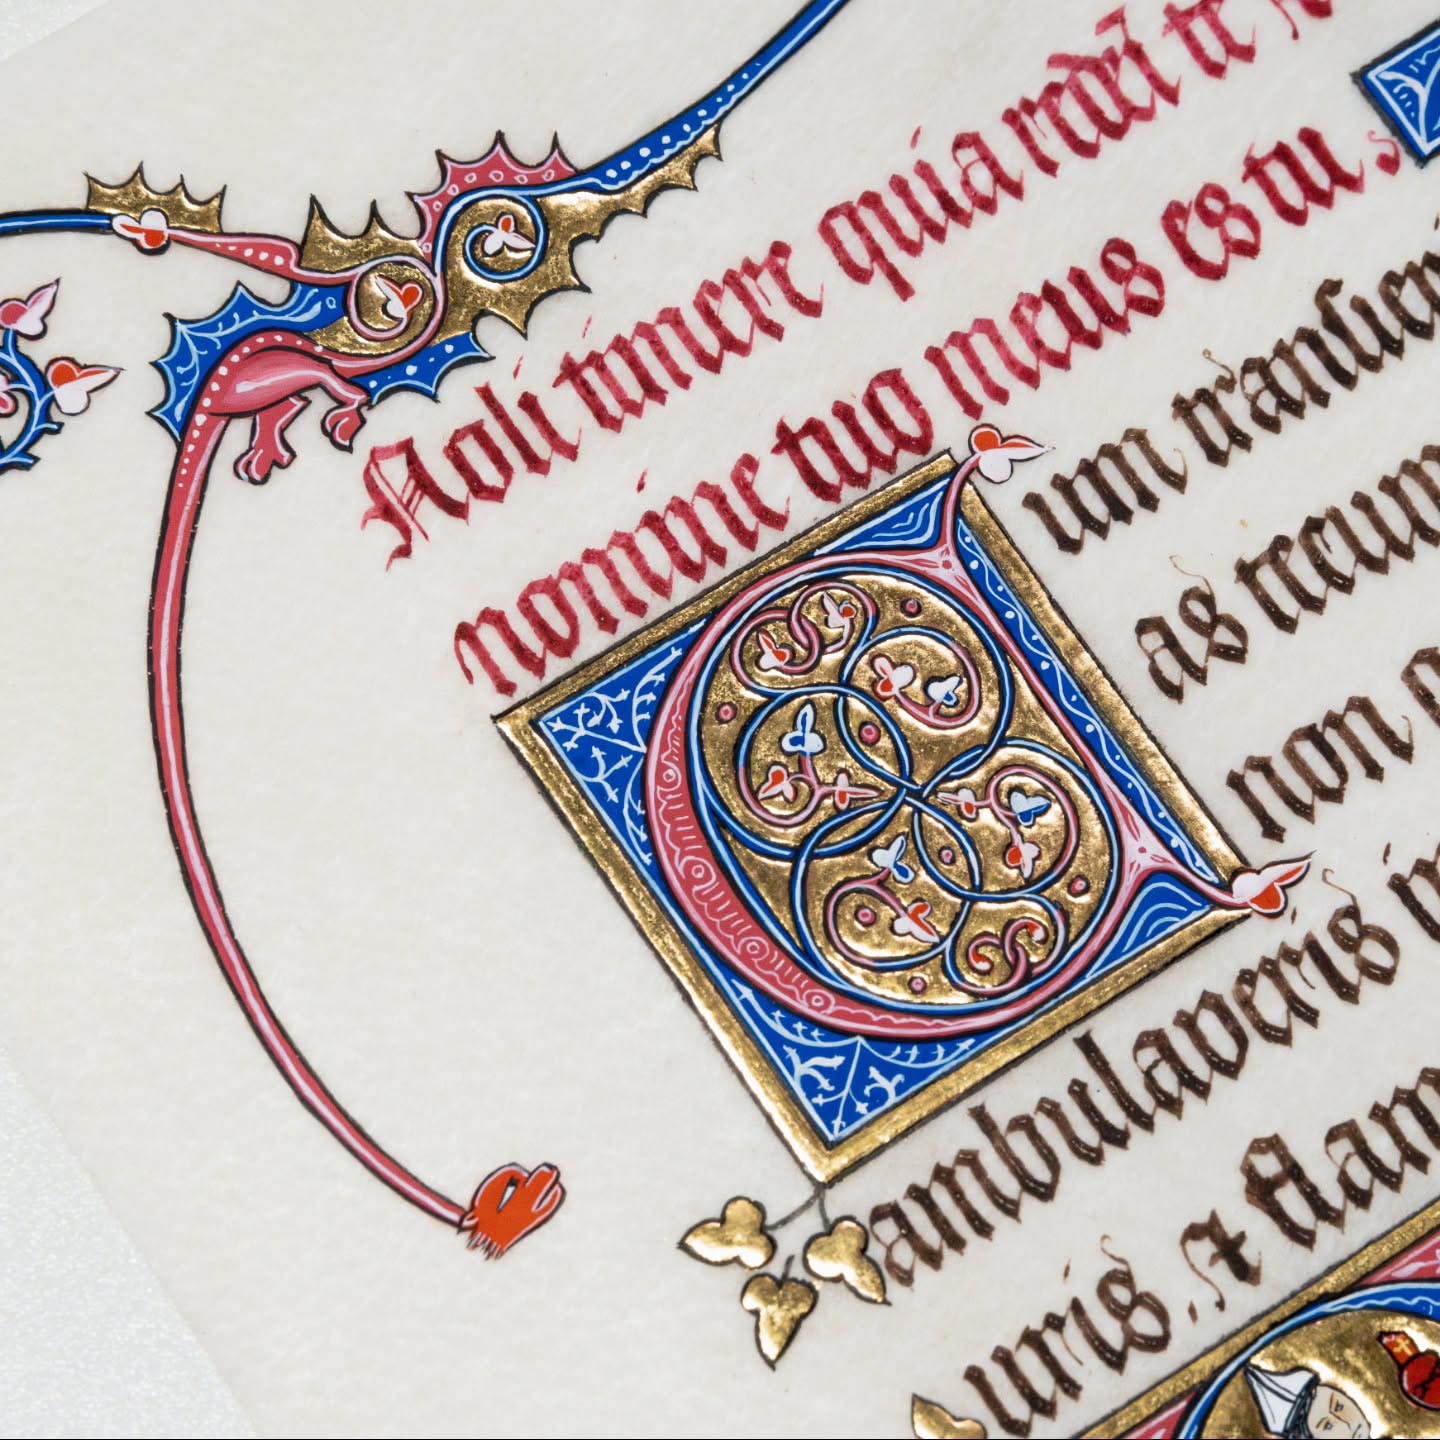 Noli timere quia redēi te
nomine tuo meus es tu.
Cum transier
as tecum
non
ambulaveris in
uris. ⁊ flam